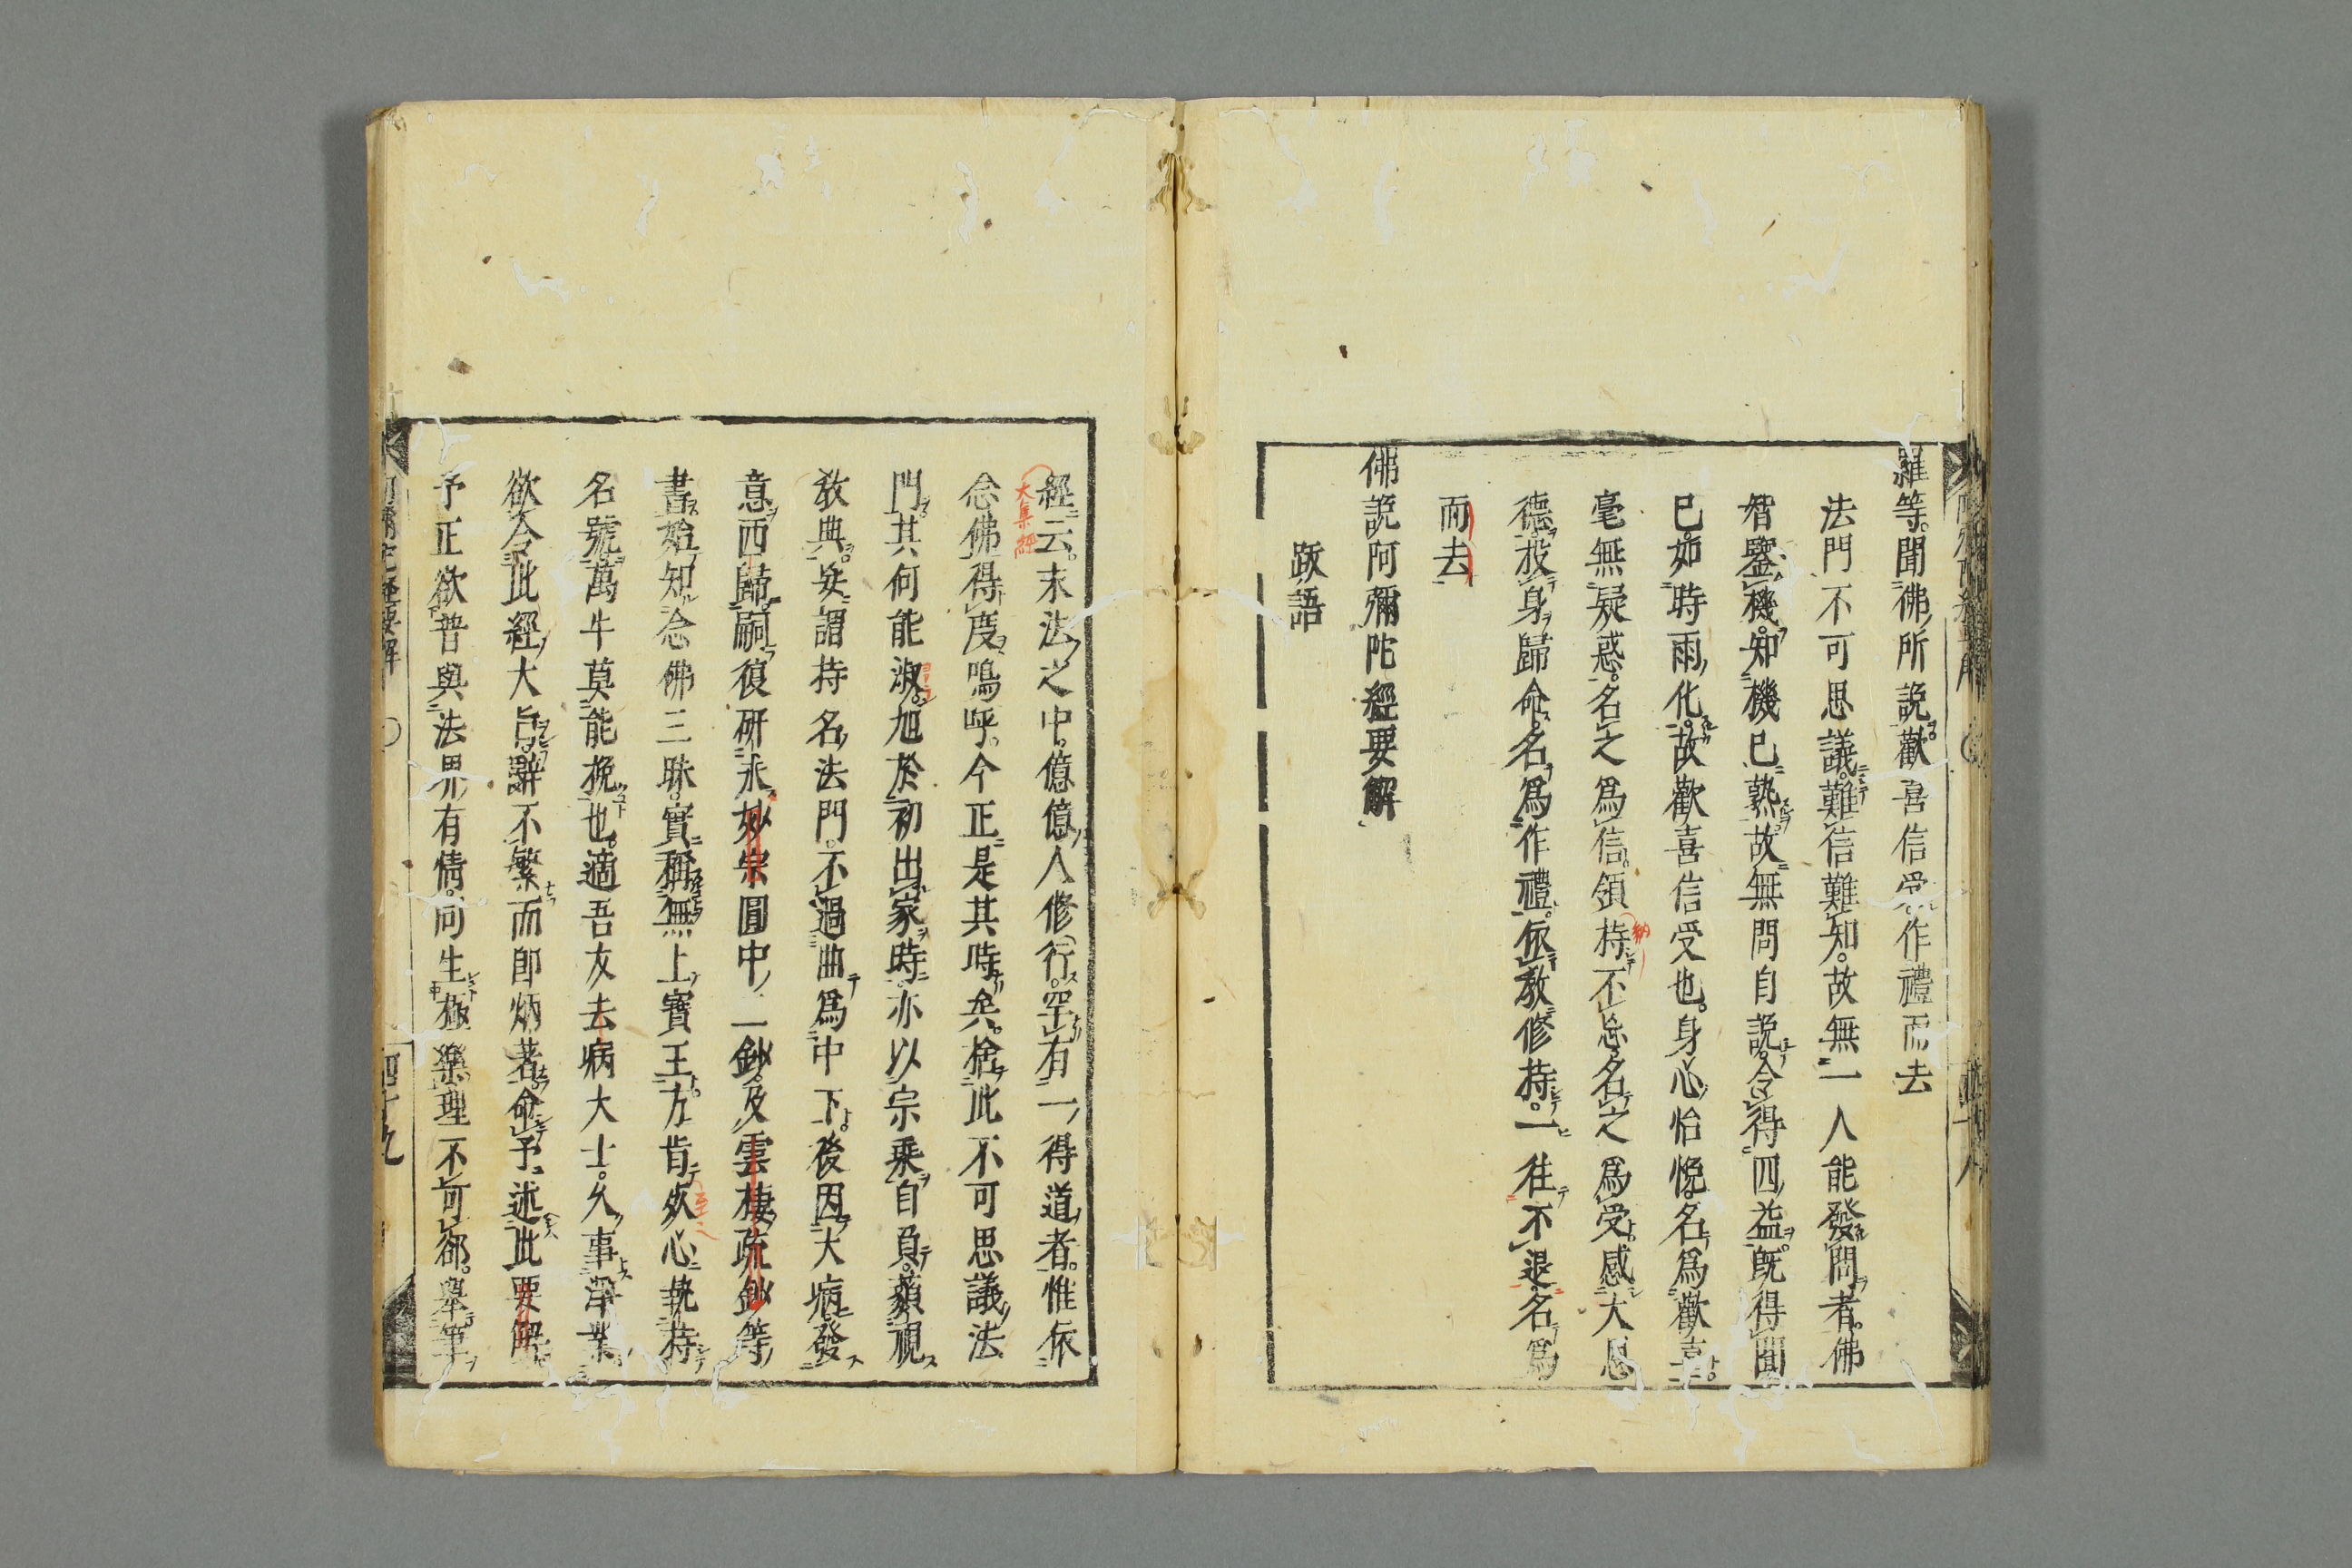 羅等。聞佛所說。歡喜信受。作禮而去
法門不可思議。難信難知。故無一人能發問者。佛
智鑒機。知機已熟。故無問自說。令得四益。既得聞
已。如時雨化。故歡喜信受也。身心怡悅。名爲歡喜。
毫無疑惑。名之爲信。領持不忘。名之爲受。感大恩
德。投身歸命。名爲作禮。依教修持。一往不退。名爲
而去
佛說阿彌陀經要解
跋語
經云。末法之中。億億人修行。罕有一得道者。惟依
念佛得度。嗚呼。今正是其時矣。捨此不可思議法
門。其何能淑。旭於初出家時。亦以宗乘自負。藐視
教典。妄謂持名法門。不過曲爲中下。後因大病發
意西歸。嗣復研永妙宗圓中二鈔。及雲棲疏鈔等
書。始知念佛三昧。實稱無上寶王。方肯死心執持
名號。萬牛莫能挽也。適吾友去病大士。久事淨業。
欲令此經大旨。辭不繁而即炳著。命予述此要解
予正欲普與法界有情。同生極樂。理不可郤。舉筆
大集經
納
阿彌陀經要解
四十九